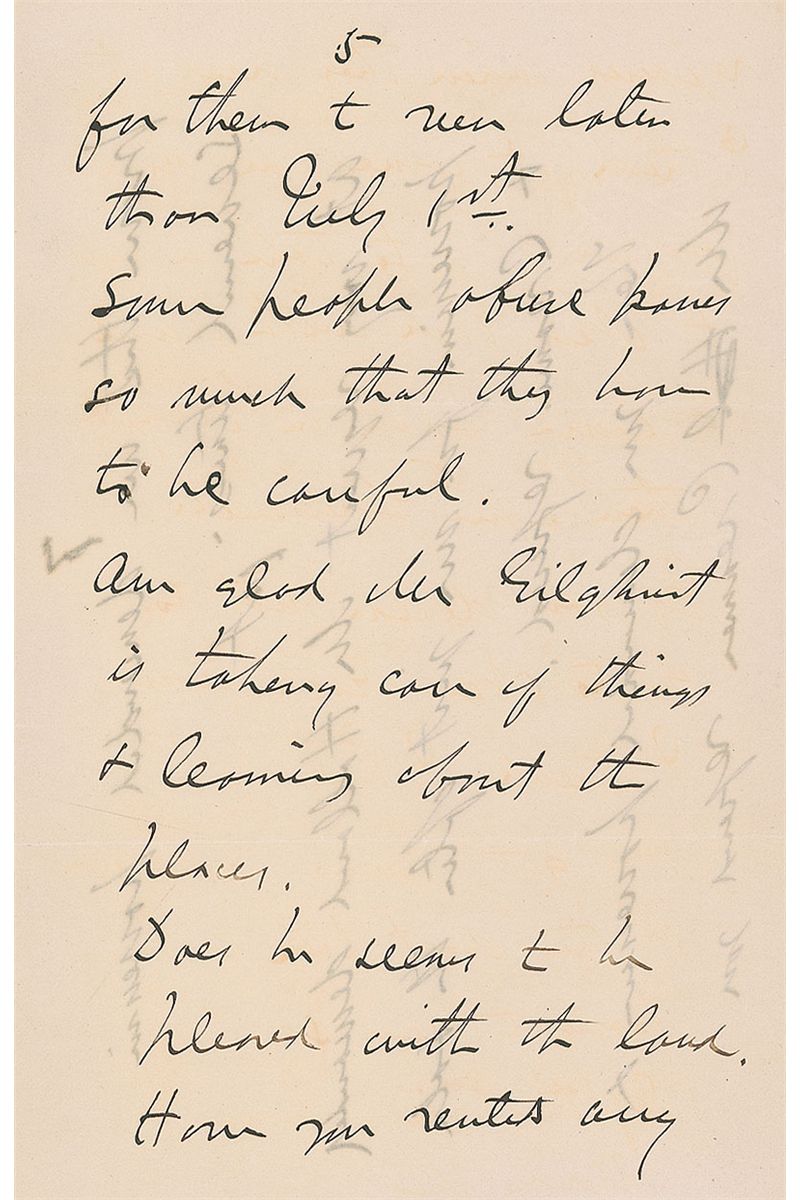 5
for them & run later
than July 1st.
Some people abuse passes
so much that they have
to be careful.
Am glad Mr Gilchrist
is taking care of things
& learning about the
places.
Does he seems to be
pleased with the land.
Have you rented any